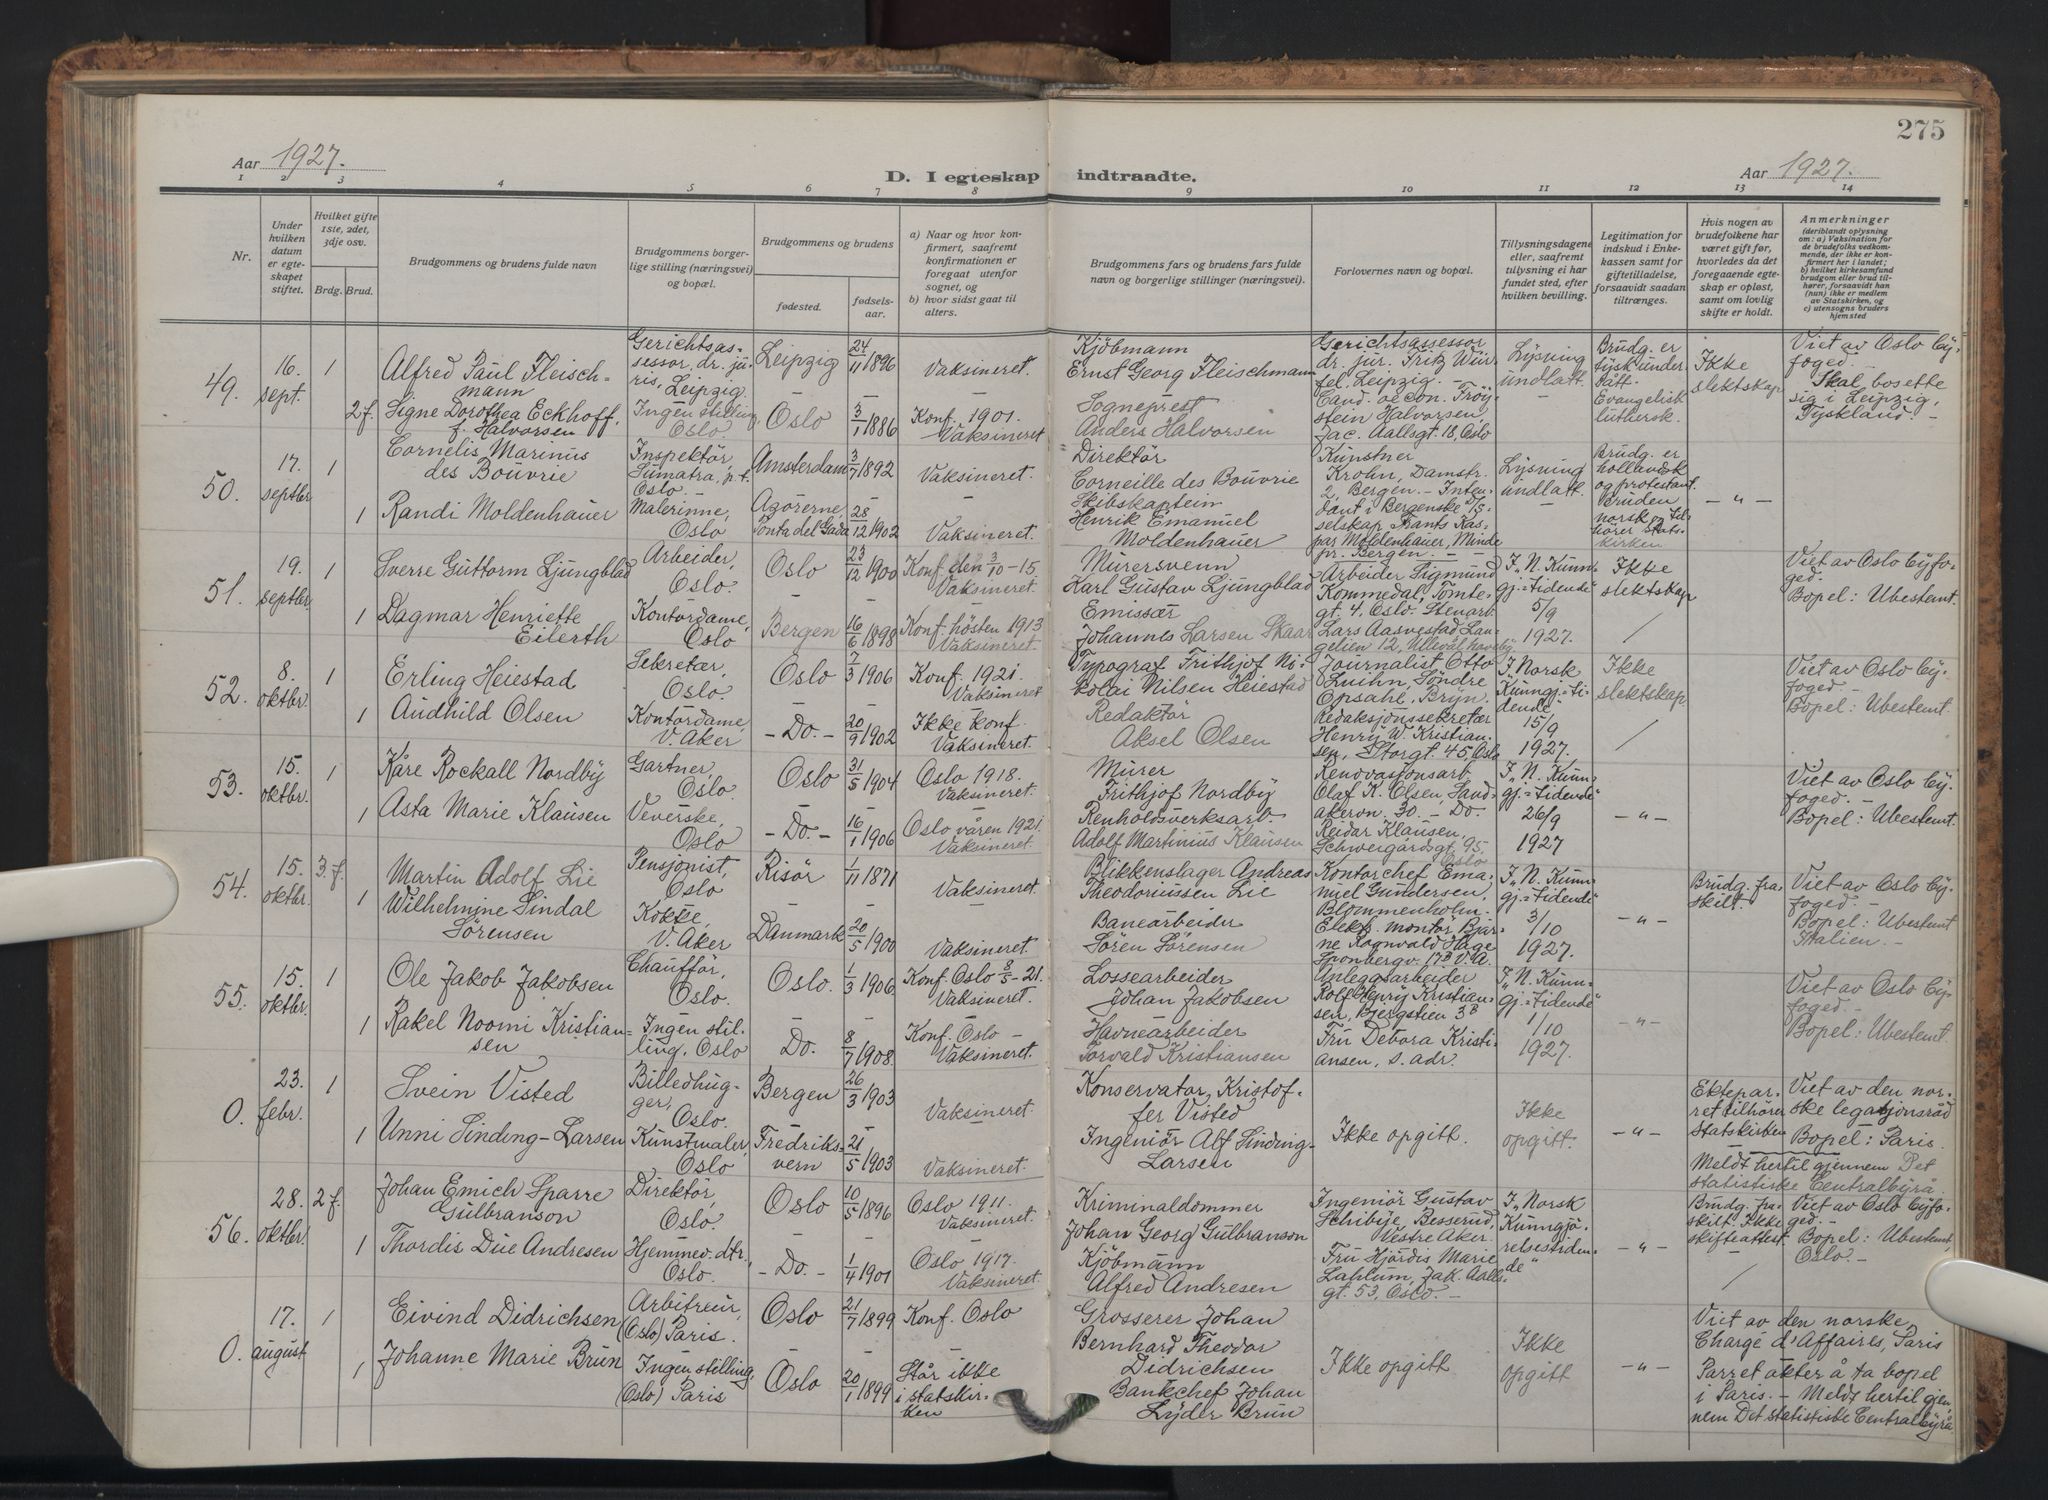 275
Aar 1927.
D. I egteskap indtraadte.
Aar 1927.
1 2 3 4 5 6 7 8 9 10 11 12 13 14
Nr.
Under hvilken datum er egteskapet stiftet.
Hvilket gifte 1ste, 2det, 3dje osv.
Brdg. Brud.
Brudgommens og brudens fulde navn
Brudgommens borgerlige stilling (næringsvei) og bopæl.
Brudgommens og brudens
fødested.
fødselsaar.
a) Naar og hvor konfirmert, saafremt konfirmationen er foregaat utenfor sognet, og
b) hvor sidst gaat til alters.
Brudgommens fars og brudens fars fulde navn og borgerlige stillinger (næringsvei).
Forlovernes navn og bopæl.
Tillysningsdagene eller, saafremt tillysning ei har fundet sted, efter hvilken bevilling.
Legitimation for indskud i Enkekassen samt for giftetilladelse, forsaavidt saadan tiltrænges.
Hvis nogen av brudefolkene har været gift før, hvorledes da det foregaaende egteskap er opløst, samt om lovlig skifte er holdt.
Anmerkninger
(deriblandt oplysning om: a) Vaksination for de brudefolks vedkommende, der ikke er konfirmert her i landet; b) hvilket kirkesamfund brudgom eller brud tilhører, forsaavidt han (hun) ikke er medlem av Statskirken, og c) utensogns bruders hjemsted
49. 16. sept. 1
Alfred Paul Fleischmann
Gerichtsassessor, dr. juris, Leipzig.
Leipzig 24/11 1896
Vaksineret.
Kjöbmann
Ernst Georg Fleischmann
Gerichtsassessor dr. jur. Fritz Würfel, Leipzig. –
Lysning undlatt.
Brudg. er tysk undersått. Evangelisk luthersk.
Ikke slektskap
Viet av Oslo Byfoged. –
Skal bosette sig i Leipzig, Tyskland. –
2 f. Signe Dorothea Eckhoff, f. Halvorsen
Ingen stilling, Oslo.
Oslo 3/1 1886
Konf. 1901. Vaksineret
Sogneprest
Anders Halvorsen
Cand. oecon. Tröystein Halvorsen, Jac. Aallsgt. 18, Oslo
50. 17. septbr 1
Cornelis Marinus des Bouvrie
Inspektör, Sumatra, p.t. Oslo.
Amsterdam 3/7 1892
Vaksineret.
Direktör
Corneille des Bouvrie
Kunstner Krohn, Damstr. 2, Bergen. –
Lysning undlatt.
Brudg. er hollandsk og protestant. Bruden norsk og tilhörer statskirken
– " –
1 Randi Moldenhauer
Malerinne, Oslo
Azorerne, Ponta del Gada 28/12 1902
Vaksineret.
Skibskaptein
Henrik Emanuel Moldenhauer
Intendant i Bergenske D/S selskap Hants Kaspar Moldenhauer, Minde pr. Bergen. –
51. 19. septbr 1
Sverre Guttorm Ljungblad
Arbeider, Oslo.
Oslo 23/12 1900
Konf. den 3/10 – 15 Vaksineret.
Murersvenn
Karl Gustav Ljungblad
Arbeider Sigmund Kommedal, Tomtegt. 4, Oslo.
I „N. Kunngj.=tidende" 5/9 1927.
Ikke slektskap
Viet av Oslo Byfoged.
Bopel: Ubestemt.
1 Dagmar Henriette Eilerth
Kontordame, Oslo
Bergen 16/6 1898
Konf. hösten 1913 Vaksineret.
Emissær
Johannes Larsen Skaar
Stenarb. Lars Aasvestad, Langelien 12, Ullevål haveby
52. 8. oktbr. 1
Erling Heiestad
Sekretær, Oslo.
Oslo 7/3 1906
Konf. 1921. Vaksineret
Typograf Frithjof Nikolai Nilsen Heiestad
Journalist Otto Luihn, Söndre Opsahl, Bryn.
I „Norsk Kunngj.=tidende" 15/9 1927.
Ikke slektskap.
Viet av Oslo Byfoged. –
Bopel: Ubestemt.
1 Audhild Olsen
Kontordame, V. Aker
– Do. – 20/9 1902
Ikke konf. Vaksineret.
Redaktör
Aksel Olsen
Redaksjonssekretær Henry W. Kristiansen, Storgt. 45, Oslo
53. 15. oktbr. 1
Kåre Rockall Nordby
Gartner, Oslo.
Oslo 31/5 1904
Oslo 1918. Vaksineret.
Murer
Frithjof Nordby
Renovasjonsarb. Olaf K. Olsen, Sandakerön. 30. – Do.
I „N. Kunngj.=tidende" 26/9 1927
– " –
Viet av Oslo Byfoged. –
Bopel: Ubestemt.
1 Asta Marie Klausen
Veverske, Oslo
– Do. – 16/1 1906
Oslo våren 1921. Vaksineret.
Renholdsverksarb.
Adolf Martinius Klausen
Reidar Klausen, Schweigårdsgt. 95, Oslo
54. 15. oktbr. 3. f.
Martin Adolf Lie
Pensjonist, Oslo
Risör 1/11 1871
Vaksineret.
Blikkenslager Andreas Theodoriussen Lie
Kontorchef Emanuel Gundersen, Blommenholm.
I „N. Kunngj.=tidende" 3/10 1927.
– " –
Brudg. fraskilt.
Viet av Oslo Byfoged. –
Bopel: Ubestemt Italien. –
1 Wilhelmine Sindal Sörensen
Kokke, V. Aker
Danmark 20/5 1900
Vaksineret.
Banearbeider
Sören Sörensen
Elektr. montör Bjarne Ragnvald Hage Sponbergv. 17B V. A.
55. 15. oktbr. 1
Ole Jakob Jakobsen
Chaufför, Oslo.
Oslo. 1/3 1906
Konf. Oslo 8/5 – 21. Vaksineret.
Lossearbeider
Johan Jakobsen
Anleggsarbeider Rolf Henry Kristiansen, Bjergstien 3B
I „N. Kunngj.=tidende" 1/10 1927.
– " –
Viet av Oslo Byfoged. –
Bopel: Ubestemt.
1 Rakel Noomi Kristiansen
Ingen stilling, Oslo
Do. 8/7 1908.
Konf. Oslo – Vaksineret.
Havnearbeider
Torvald Kristiansen
Fru Debora Kristiansen, s. adr.
0. 23. febr. 1
Svein Visted
Billedhugger, Oslo.
Bergen 26/3 1903
Vaksineret.
Konservator, Kristoffer Visted
Ikke opgitt.
Ikke opgitt.
– " –
Ekteparret tilhører Statskirken
Viet av den norske legasjonsråd
Bopel: Paris.
Meldt hertil gjennem Det statistiske Centralbyrå
1 Unni Sinding-Larsen
Kunstmaler, Oslo
Fredriksvern 21/5 1903
Vaksineret.
Ingeniör Alf Sinding-Larsen
56. 28. oktbr. 2 f.
Johan Emich Sparre Gulbranson
Direktör, Oslo.
Oslo 10/5 1896
Oslo 1911. Vaksineret.
Kriminaldommer
Johan Georg Gulbranson
Ingeniör Gustav Schibye, Besserud, Vestre Aker.
I „Norsk Kunngjörelsestidende"
– " –
Brudg. fraskilt. Ikke skifteattest.
Viet av Oslo Byfoged. –
Bopel: Ubestemt, Oslo. –
1 Thordis Due Andresen
Hjemmev. dtr., Oslo.
– Do. – 1/4 1901
Oslo 1917. Vaksineret.
Kjöbmann
Alfred Andresen
Fru Hjördis Marie Lahlum, Jak. Aallsgt. 53, Oslo. –
0. 17. august 1
Eivind Didrichsen
Arbitreur, (Oslo) Paris.
Oslo 21/7 1899
Konf. Oslo
Grosserer Johan Bernhard Theodor Didrichsen
Ikke opgitt
Ikke opgitt
– " –
Viet av den norske Chargé d'Affaires, Paris
Parret akter å ta bopel i Paris. – Meldt hertil gjennem Det statistiske Centralbyrå
1 Johanne Marie Brun
Ingen stilling, (Oslo) Paris
Oslo 20/1 1899
Står ikke i statskirken
Bankchef Johan Lyder Brun